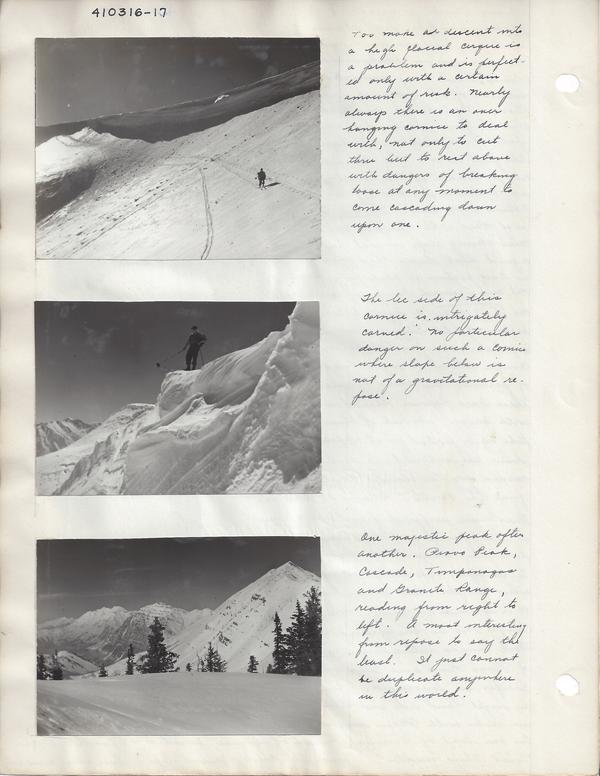 410316-17
Too make a descent into
a high glacial cirque is
a problem and is perfect-
ed only with a certain
amount of risk. Nearly
always there is an over
hanging cornice to deal
with, not only to cut
thru but to rest above
with dangers of breaking
loose at any moment to
come cascading down
upon one.
The lee side of this
cornice is intrigately
carved. No particular
danger on such a cornice
where slope below is
not of a gravitational re-
pose.
One majestic peak after
another. Provo Peak,
Cascade, Timpanogas
and Granite Range,
reading from right to
left. A most interesting
from repose to say the
least. It just cannot
be duplicate anywhere
in this world.